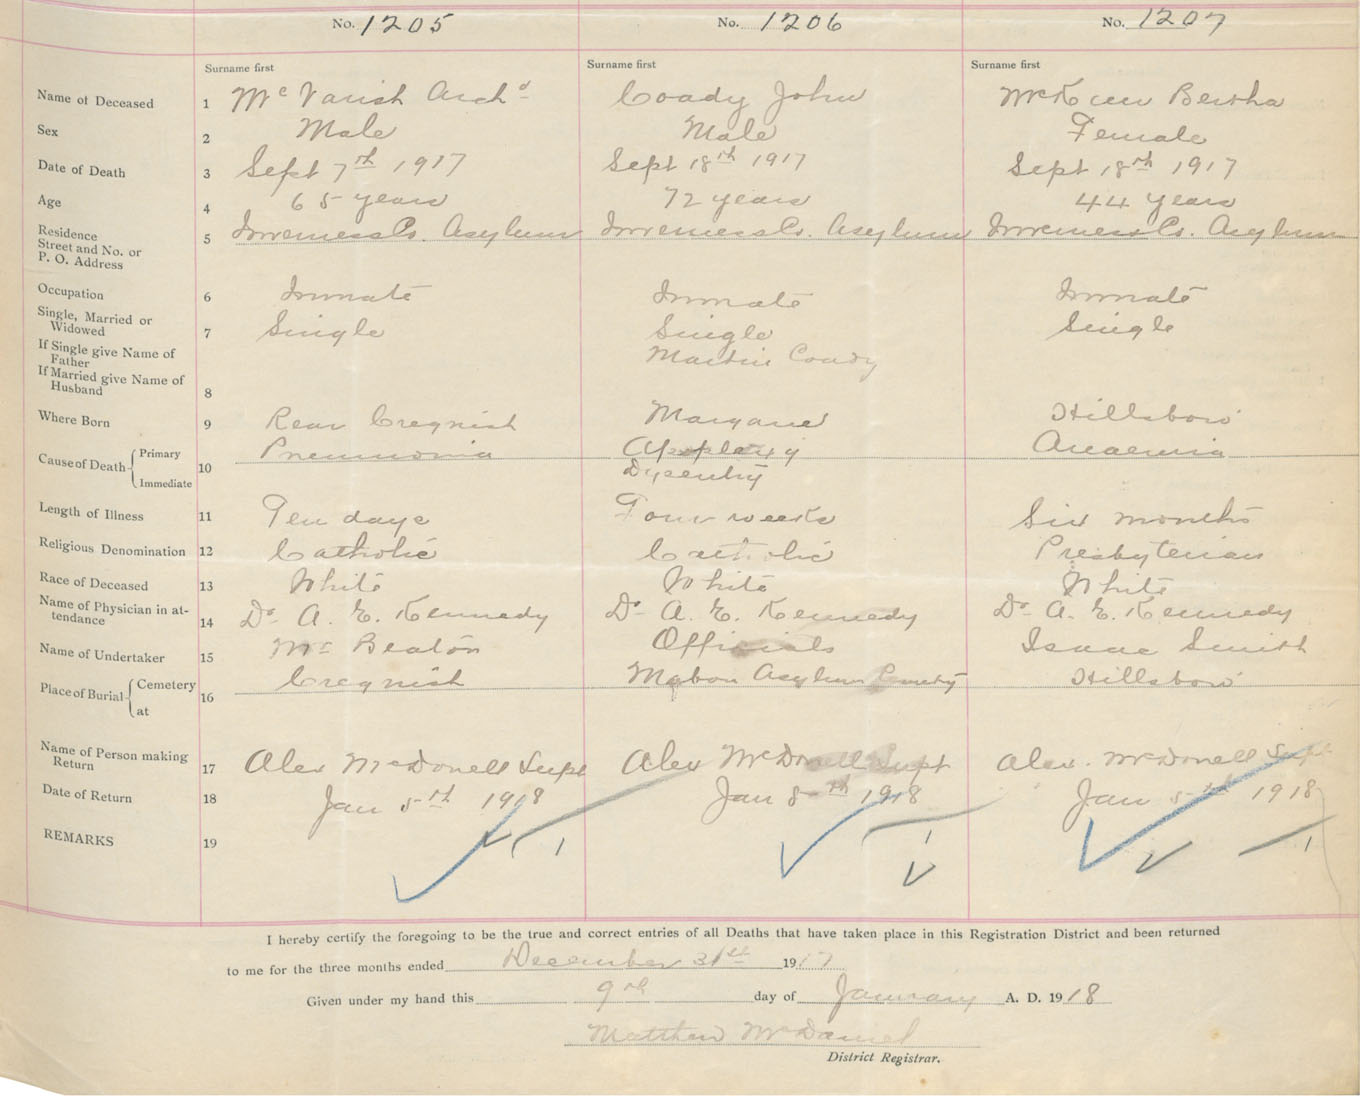 No. 1205 No. 1206 No. 1207
Surname first Surname first Surname first
Name of Deceased 1 McVarish Archd Coady John McKeen Bertha
Sex 2 Male Male Female
Date of Death 3 Sept 7th 1917 Sept 18th 1917 Sept 18th 1917
Age 4 65 years 72 years 44 years
Residence
Street and No. or 5 Inverness Co. Asylum Inverness Co. Asylum Inverness Co. Asylum
P. O. Address
Occupation 6 Inmate Inmate Inmate
Single, Married or
Widowed 7 Single Single Single
If Single give Name of
Father Martin Coady
If Married give Name of
Husband 8
Where Born 9 Rear Cregnish Margaree Hillsboro
Cause of Death Primary Pneumonia Apoplexy Anaemia
10 Immediate Dysentry
Length of Illness 11 Ten days Four weeks Six months
Religious Denomination 12 Catholic Catholic Presbyterian
Race of Deceased 13 White White White
Name of Physician in at-
tendance 14 Dr A. E. Kennedy Dr A. E. Kennedy Dr A. E. Kennedy
Name of Undertaker 15 Mc Beaton Officials Isaac Smith
Place of Burial Cemetery 16 Cregnish Mabou Asylum Cemety Hillsboro
at
Name of Person making
Return 17 Alex McDonell Supt Alex McDonell Supt Alex. McDonell Supt
Date of Return 18 Jan 5th 1918 Jan 8th 1918 Jan 5th 1918
REMARKS 19
I hereby certify the foregoing to be the true and correct entries of all Deaths that have taken place in this Registration District and been returned
to me for the three months ended December 31st 1917
Given under my hand this 9th day of January A. D. 1918
Matthew McDaniel
District Registrar.